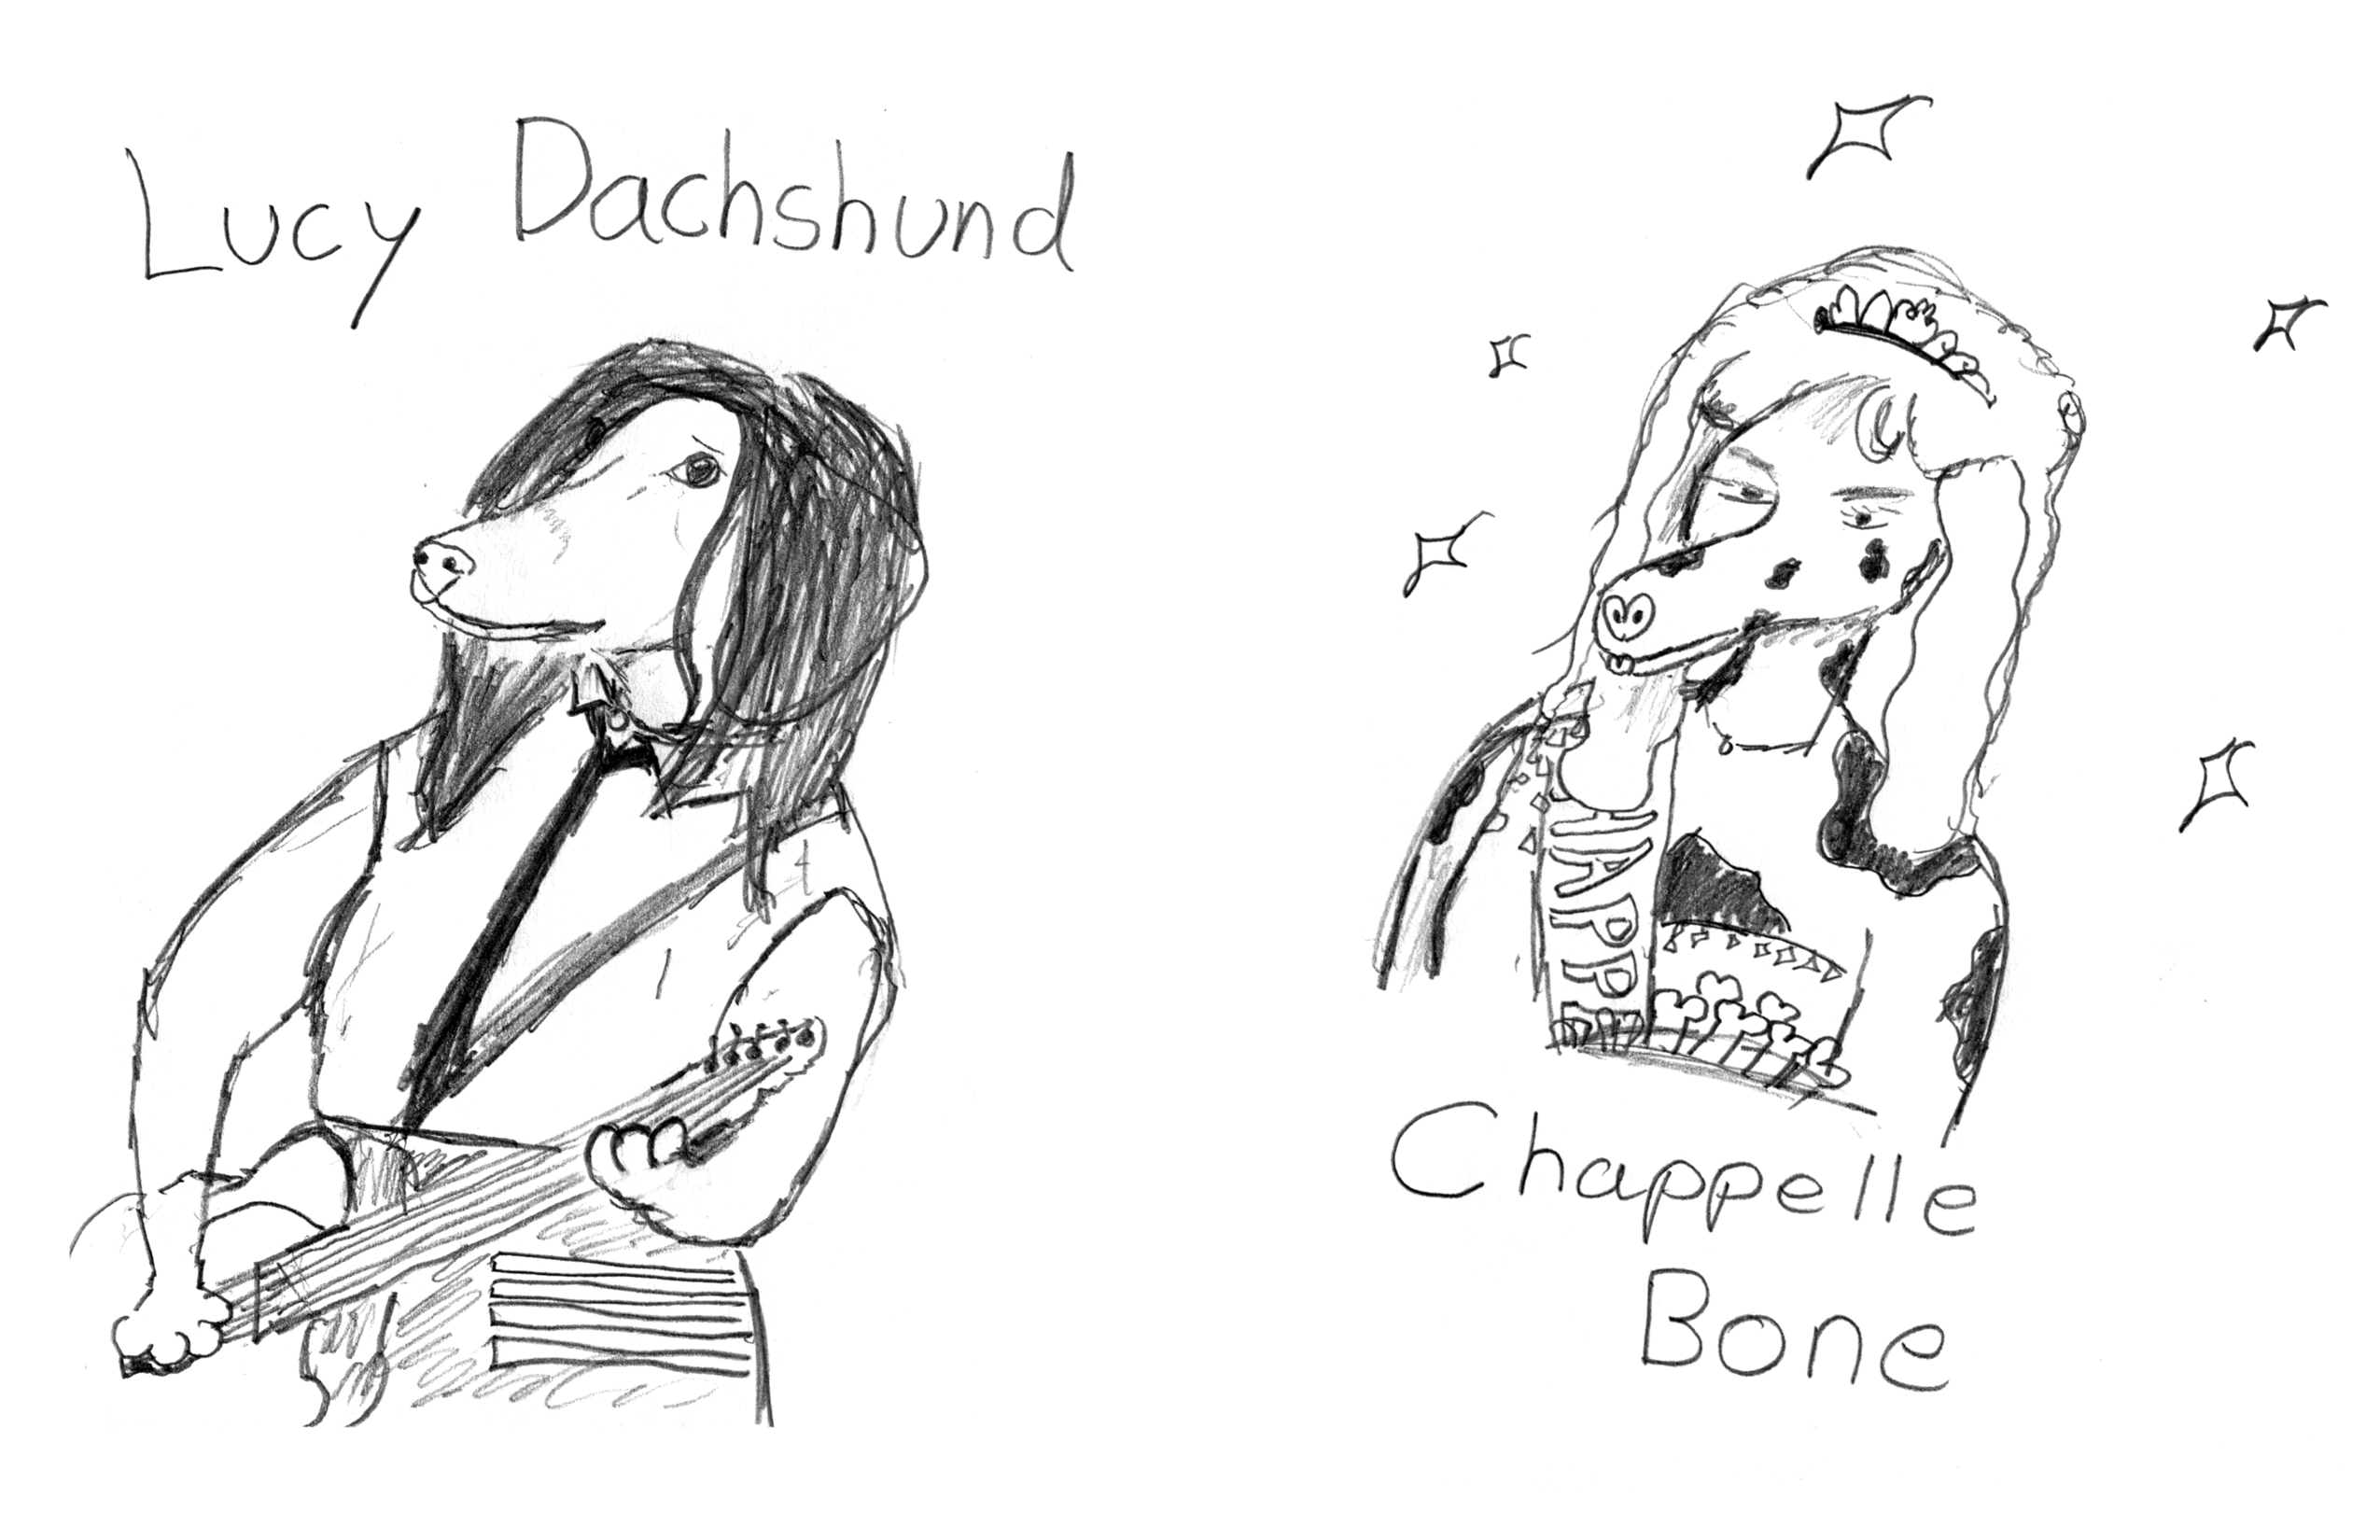 Lucy Dachshund
HAPP
Chappelle
Bone